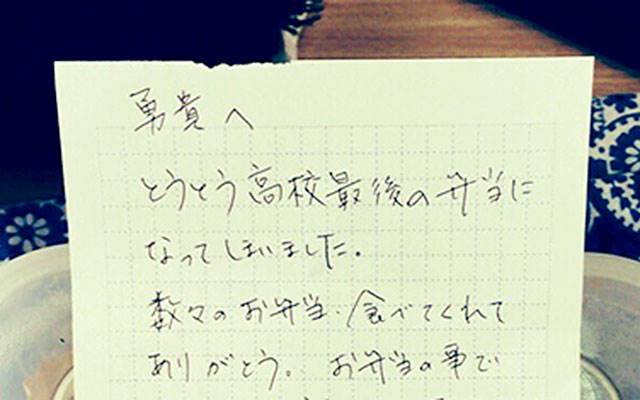 勇貴へ
とうとう高校最後の弁当に
なってしまいました。
数々のお弁当、食べてくれて
ありがとう。お弁当の事で